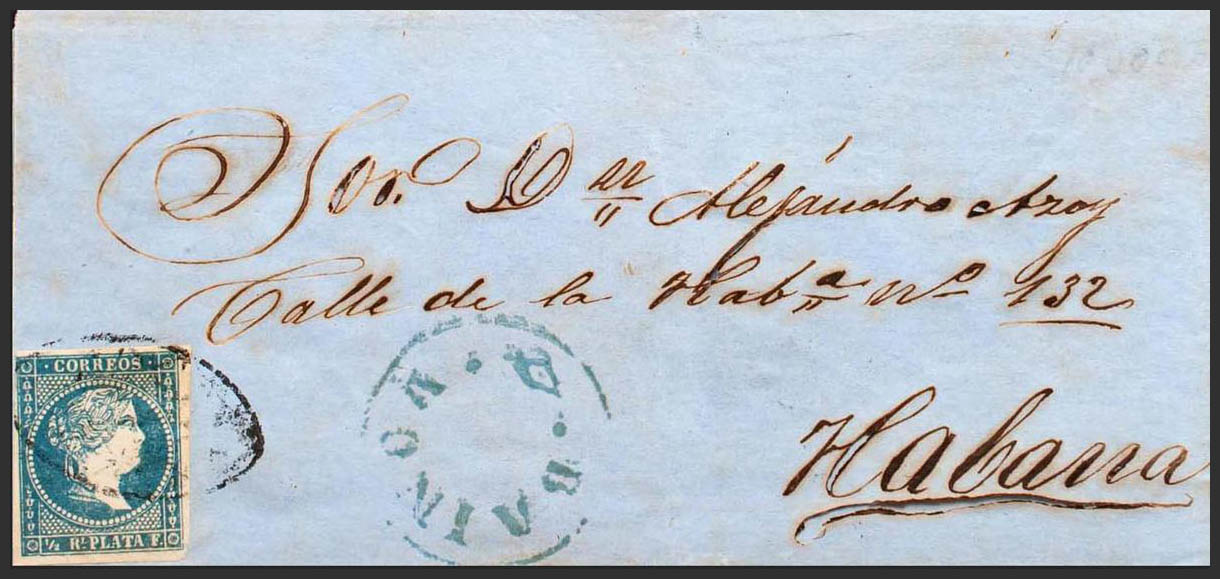 Sor. Dn Alejándro Azoy
Calle de la Habª Nº 132
Habana
CORREOS
½ Rl. PLATA F.
B. BAINOA.